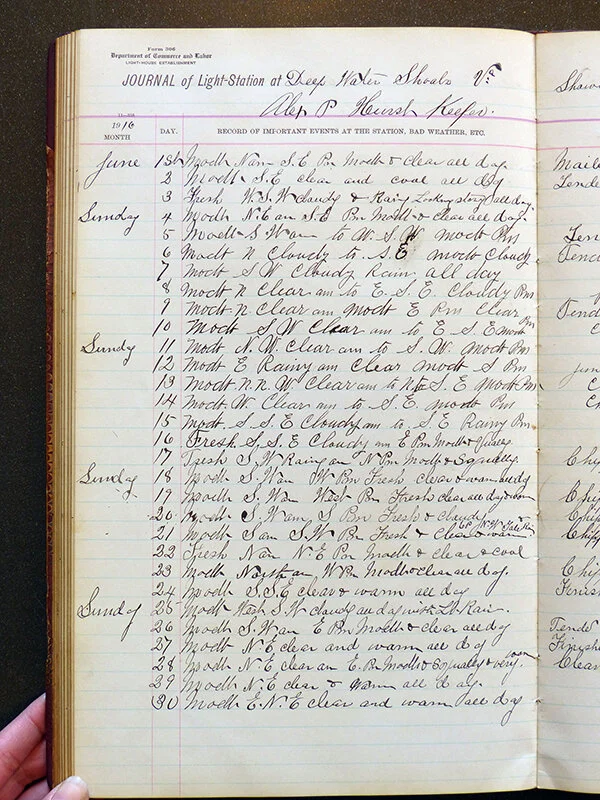 Form 306
Department of Commerce and Labor
LIGHT-HOUSE ESTABLISHMENT
JOURNAL of Light-Station at Deep Water Shoals Va
Alex P Hurst Keeper.
1916
MONTH DAY. RECORD OF IMPORTANT EVENTS AT THE STATION, BAD WEATHER, ETC.
June 1st Modt Nam S.E Pm Modt & clear all day
2 Modt S.E clear and cool all day
3 Fresh W.S.W cloudy & Rainy all day
Sunday 4 Modt N.E am S.E Pm Modt & clear all day
5 Modt S.W am to W.S.W modt Pm
6 Modt N Cloudy to S.E modt Cloudy
7 Modt S W Cloudy Rain all day
8 Modt N Clear am to E.S.E. Cloudy Pm
9 Modt N clear am modt E Pm Clear
10 Modt S.W Clear am to E.S.E modt Pm
Sunday 11 Modt N.W. Clear am to S.W. modt Pm
12 Modt E Rainy am Clear modt S Pm
13 Modt N.N.W Clear am to S.E modt Pm
14 Modt W. Clear am to S.E modt Pm
15 Modt S.S.E Cloudy am to S.E Rainy Pm
16 Fresh S.S.E Cloudy am E Pm Modt &
17 Fresh S.W Rainy am N Pm Modt & Squally
Sunday 18 Modt S.W am W Pm Fresh clear & warm all day
19 Modt S.W am West Pm Fresh clear all day & warm
20 Modt S.W am S Pm Fresh & cloudy
21 Modt S am S.W Pm Fresh & clear & warm
22 Fresh N am N.E Pm Modt & clear & cool
23 Modt North am W Pm Modt & clear all day.
24 Modt S.S.E clear & warm all day
Sunday 25 Modt West S.W cloudy all day with Lt Rain.
26 Modt S.W am E Pm Modt & clear all day
27 Modt N.E clear and warm all day
28 Modt N.E clear am E.Pm Modt & Squally & very warm
29 Modt N.E clear & warm all day.
30 Modt E.N.E clear and warm all day